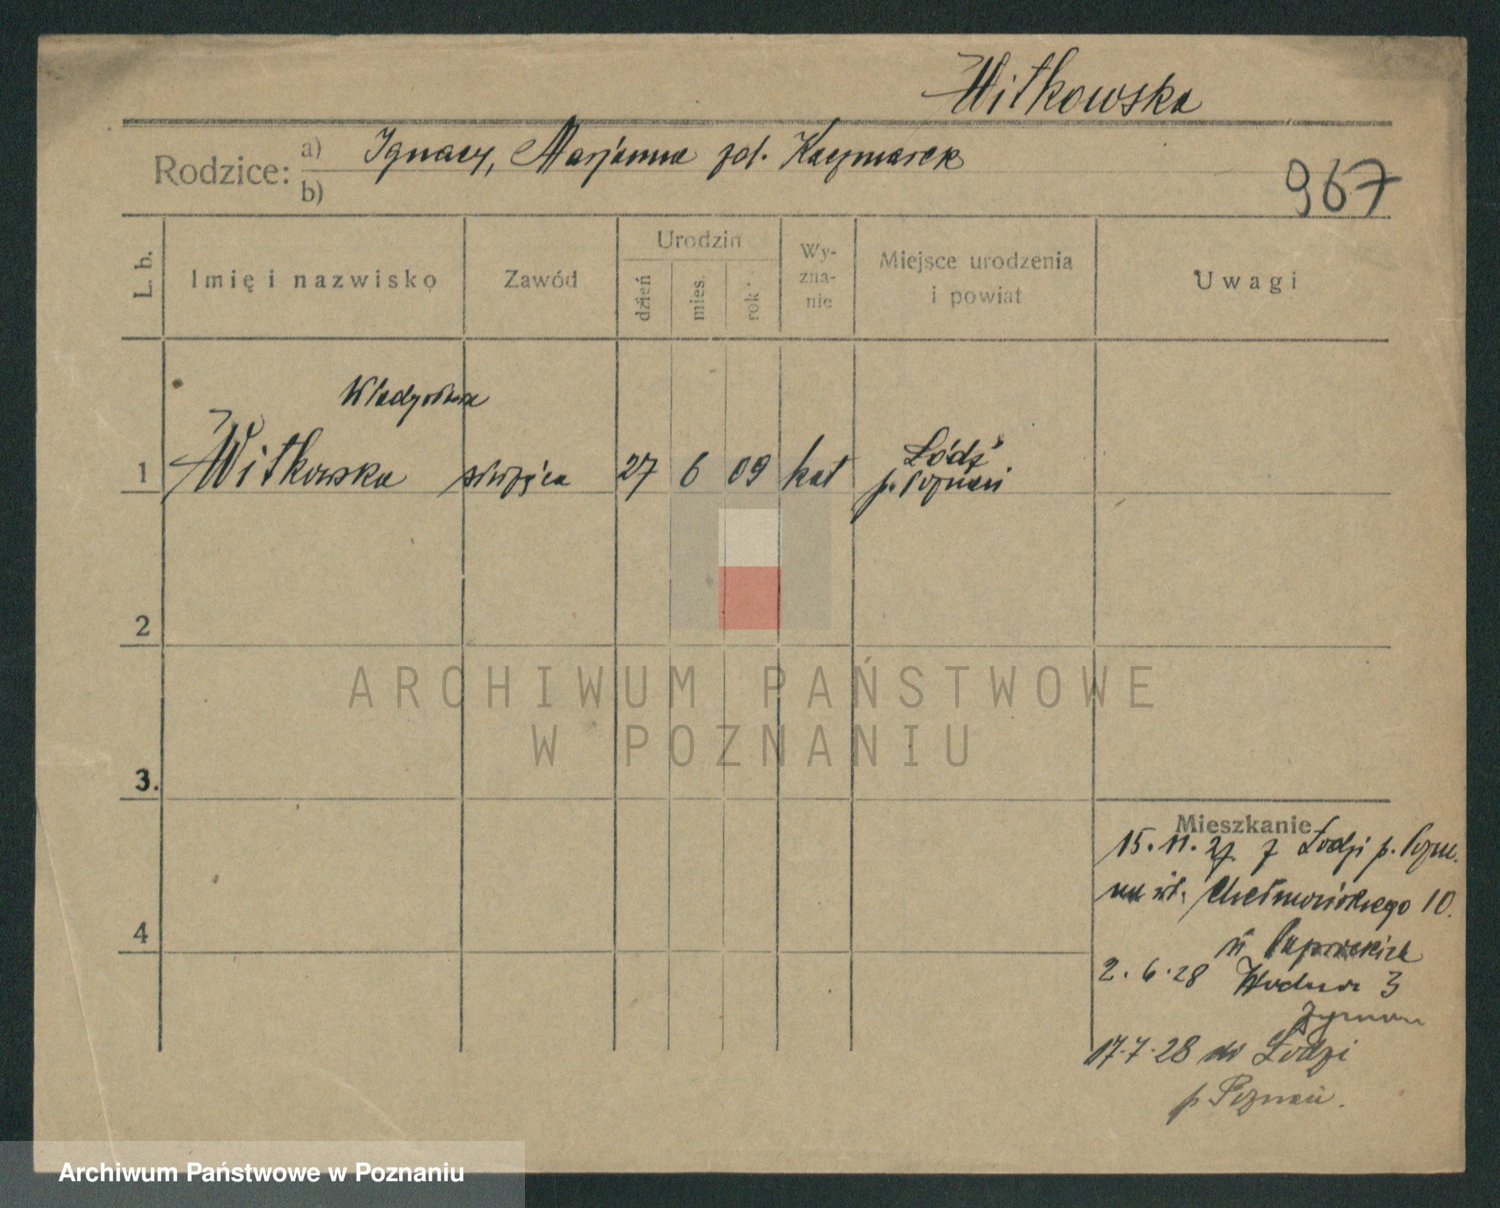 Witkowska
Rodzice: a) Ignacy, Marjanna zd. Kaczmarek
b)
967
L. b.
Imię i nazwisko
Zawód
Urodzin
dzień
mies.
rok
Wy-
zna-
nie
Miejsce urodzenia
i powiat
Uwagi
Władysława
1 Witkowska służąca 27 6 09 kat Łódź
p. Poznań
2
3.
4
Mieszkanie
15.11.27 z Łodzi p. Pozn.
na Chełmońskiego 10.
2.6.28 Wodna 3
17.7.28 do Łodzi
p. Poznań.
ARCHIWUM PAŃSTWOWE
W POZNANIU
Archiwum Państwowe w Poznaniu